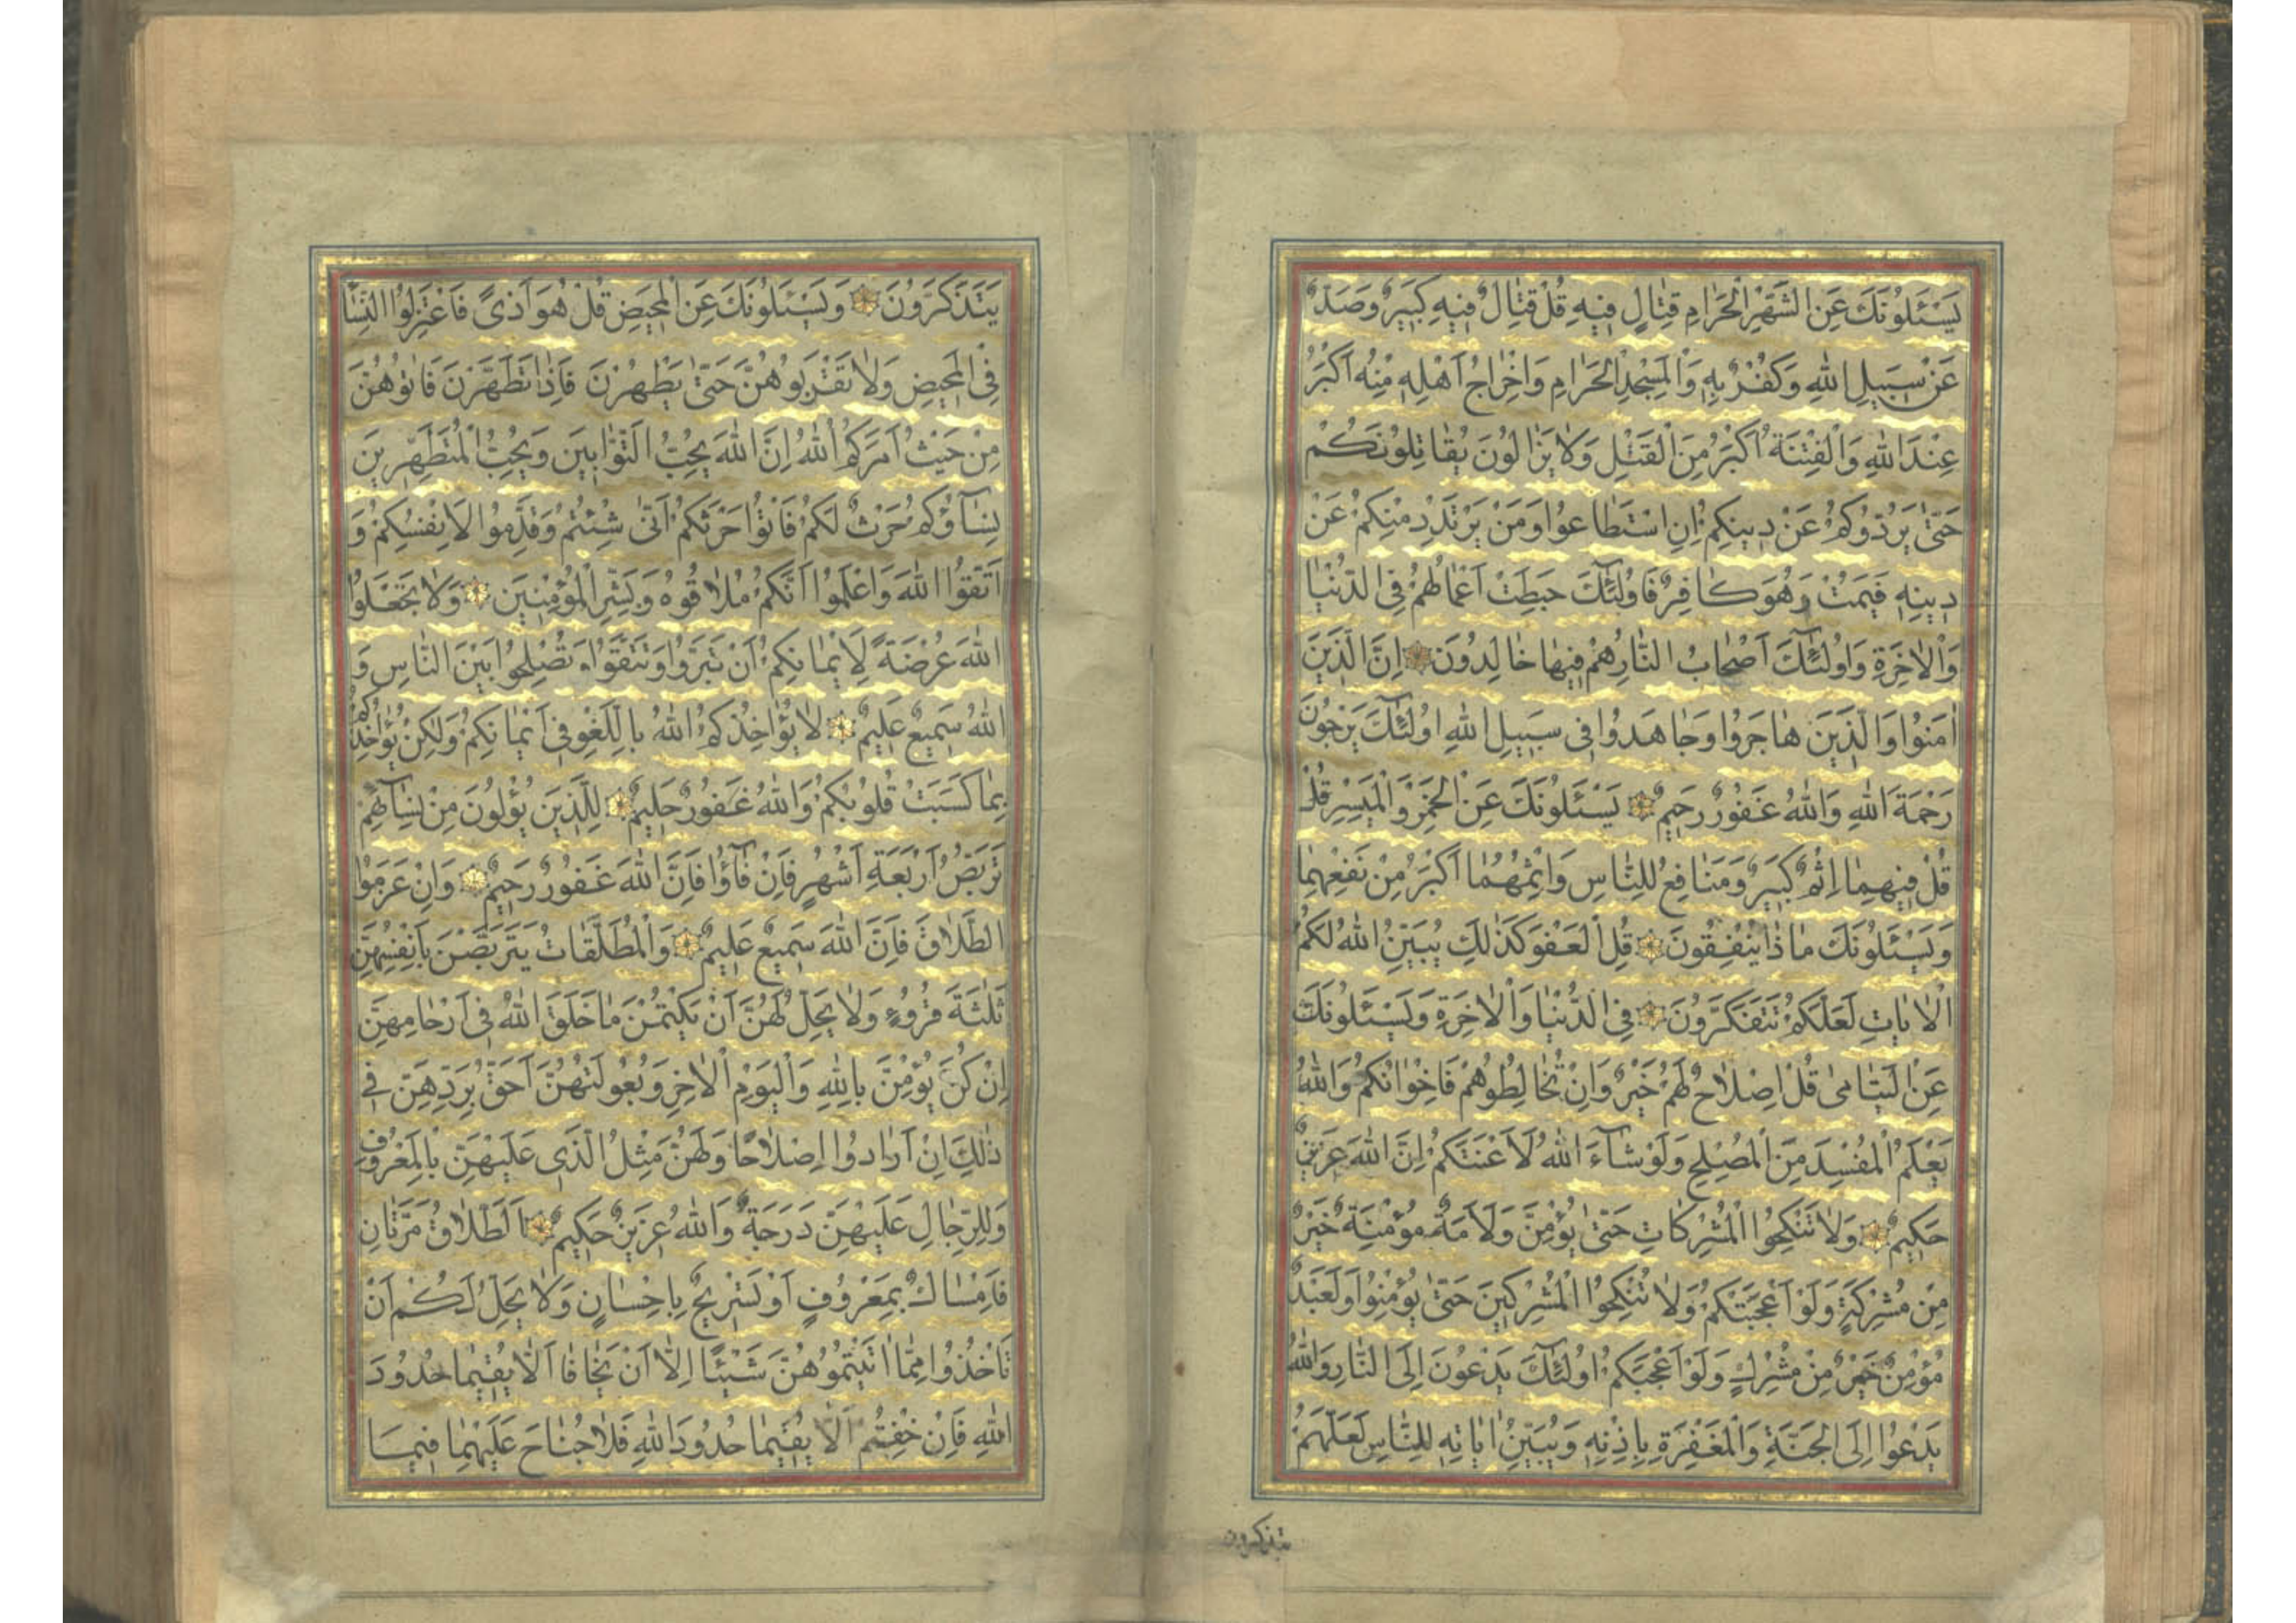 يَسْئَلُونَكَ عَنِ الشَّهْرِ الْحَرَامِ قِتَالٍ فِيهِ قُلْ قِتَالٌ فِيهِ كَبِيرٌ وَصَدٌّ
عَنْ سَبِيلِ اللهِ وَكُفْرٌ بِهِ وَالْمَسْجِدِ الْحَرَامِ وَاِخْرَاجُ اَهْلِهِ مِنْهُ اَكْبَرُ
عِنْدَ اللهِ وَالْفِتْنَةُ اَكْبَرُ مِنَ الْقَتْلِ وَلَا يَزَالُونَ يُقَاتِلُونَكُمْ
حَتّٰى يَرُدُّوكُمْ عَنْ دِينِكُمْ اِنِ اسْتَطَاعُوا وَمَنْ يَرْتَدِدْ مِنْكُمْ عَنْ
دِينِهِ فَيَمُتْ وَهُوَ كَافِرٌ فَاُولٰئِكَ حَبِطَتْ اَعْمَالُهُمْ فِي الدُّنْيَا
وَالْاٰخِرَةِ وَاُولٰئِكَ اَصْحَابُ النَّارِ هُمْ فِيهَا خَالِدُونَ اِنَّ الَّذِينَ
اٰمَنُوا وَالَّذِينَ هَاجَرُوا وَجَاهَدُوا فِي سَبِيلِ اللهِ اُولٰئِكَ يَرْجُونَ
رَحْمَةَ اللهِ وَاللهُ غَفُورٌ رَحِيمٌ يَسْئَلُونَكَ عَنِ الْخَمْرِ وَالْمَيْسِرِ قُلْ
قُلْ فِيهِمَا اِثْمٌ كَبِيرٌ وَمَنَافِعُ لِلنَّاسِ وَاِثْمُهُمَا اَكْبَرُ مِنْ نَفْعِهِمَا
وَيَسْئَلُونَكَ مَاذَا يُنْفِقُونَ قُلِ الْعَفْوَ كَذٰلِكَ يُبَيِّنُ اللهُ لَكُمُ
الْاٰيَاتِ لَعَلَّكُمْ تَتَفَكَّرُونَ فِي الدُّنْيَا وَالْاٰخِرَةِ وَيَسْئَلُونَكَ
عَنِ الْيَتَامٰى قُلْ اِصْلَاحٌ لَهُمْ خَيْرٌ وَاِنْ تُخَالِطُوهُمْ فَاِخْوَانُكُمْ وَاللهُ
يَعْلَمُ الْمُفْسِدَ مِنَ الْمُصْلِحِ وَلَوْ شَآءَ اللهُ لَاَعْنَتَكُمْ اِنَّ اللهَ عَزِيزٌ
حَكِيمٌ وَلَا تَنْكِحُوا الْمُشْرِكَاتِ حَتّٰى يُؤْمِنَّ وَلَاَمَةٌ مُؤْمِنَةٌ خَيْرٌ
مِنْ مُشْرِكَةٍ وَلَوْ اَعْجَبَتْكُمْ وَلَا تُنْكِحُوا الْمُشْرِكِينَ حَتّٰى يُؤْمِنُوا وَلَعَبْدٌ
مُؤْمِنٌ خَيْرٌ مِنْ مُشْرِكٍ وَلَوْ اَعْجَبَكُمْ اُولٰئِكَ يَدْعُونَ اِلَى النَّارِ وَاللهُ
يَدْعُوا اِلَى الْجَنَّةِ وَالْمَغْفِرَةِ بِاِذْنِهِ وَيُبَيِّنُ اٰيَاتِهِ لِلنَّاسِ لَعَلَّهُمْ
يتذكرون
يَتَذَكَّرُونَ وَيَسْئَلُونَكَ عَنِ الْمَحِيضِ قُلْ هُوَ اَذًى فَاعْتَزِلُوا النِّسَآ
فِي الْمَحِيضِ وَلَا تَقْرَبُوهُنَّ حَتّٰى يَطْهُرْنَ فَاِذَا تَطَهَّرْنَ فَاْتُوهُنَّ
مِنْ حَيْثُ اَمَرَكُمُ اللهُ اِنَّ اللهَ يُحِبُّ التَّوَّابِينَ وَيُحِبُّ الْمُتَطَهِّرِينَ
نِسَآؤُكُمْ حَرْثٌ لَكُمْ فَاْتُوا حَرْثَكُمْ اَنّٰى شِئْتُمْ وَقَدِّمُوا لِاَنْفُسِكُمْ وَ
اتَّقُوا اللهَ وَاعْلَمُوا اَنَّكُمْ مُلَاقُوهُ وَبَشِّرِ الْمُؤْمِنِينَ وَلَا تَجْعَلُوا
اللهَ عُرْضَةً لِاَيْمَانِكُمْ اَنْ تَبَرُّوا وَتَتَّقُوا وَتُصْلِحُوا بَيْنَ النَّاسِ وَ
اللهُ سَمِيعٌ عَلِيمٌ لَا يُؤَاخِذُكُمُ اللهُ بِاللَّغْوِ فِي اَيْمَانِكُمْ وَلٰكِنْ يُؤَاخِذُكُمْ
بِمَا كَسَبَتْ قُلُوبُكُمْ وَاللهُ غَفُورٌ حَلِيمٌ لِلَّذِينَ يُؤْلُونَ مِنْ نِسَآئِهِمْ
تَرَبُّصُ اَرْبَعَةِ اَشْهُرٍ فَاِنْ فَآؤُا فَاِنَّ اللهَ غَفُورٌ رَحِيمٌ وَاِنْ عَزَمُوا
الطَّلَاقَ فَاِنَّ اللهَ سَمِيعٌ عَلِيمٌ وَالْمُطَلَّقَاتُ يَتَرَبَّصْنَ بِاَنْفُسِهِنَّ
ثَلٰثَةَ قُرُوءٍ وَلَا يَحِلُّ لَهُنَّ اَنْ يَكْتُمْنَ مَا خَلَقَ اللهُ فِي اَرْحَامِهِنَّ
اِنْ كُنَّ يُؤْمِنَّ بِاللهِ وَالْيَوْمِ الْاٰخِرِ وَبُعُولَتُهُنَّ اَحَقُّ بِرَدِّهِنَّ فِي
ذٰلِكَ اِنْ اَرَادُوا اِصْلَاحًا وَلَهُنَّ مِثْلُ الَّذِي عَلَيْهِنَّ بِالْمَعْرُوفِ
وَلِلرِّجَالِ عَلَيْهِنَّ دَرَجَةٌ وَاللهُ عَزِيزٌ حَكِيمٌ اَلطَّلَاقُ مَرَّتَانِ
فَاِمْسَاكٌ بِمَعْرُوفٍ اَوْ تَسْرِيحٌ بِاِحْسَانٍ وَلَا يَحِلُّ لَكُمْ اَنْ
تَاْخُذُوا مِمَّا اٰتَيْتُمُوهُنَّ شَيْئًا اِلَّا اَنْ يَخَافَا اَلَّا يُقِيمَا حُدُودَ
اللهِ فَاِنْ خِفْتُمْ اَلَّا يُقِيمَا حُدُودَ اللهِ فَلَا جُنَاحَ عَلَيْهِمَا فِيمَا